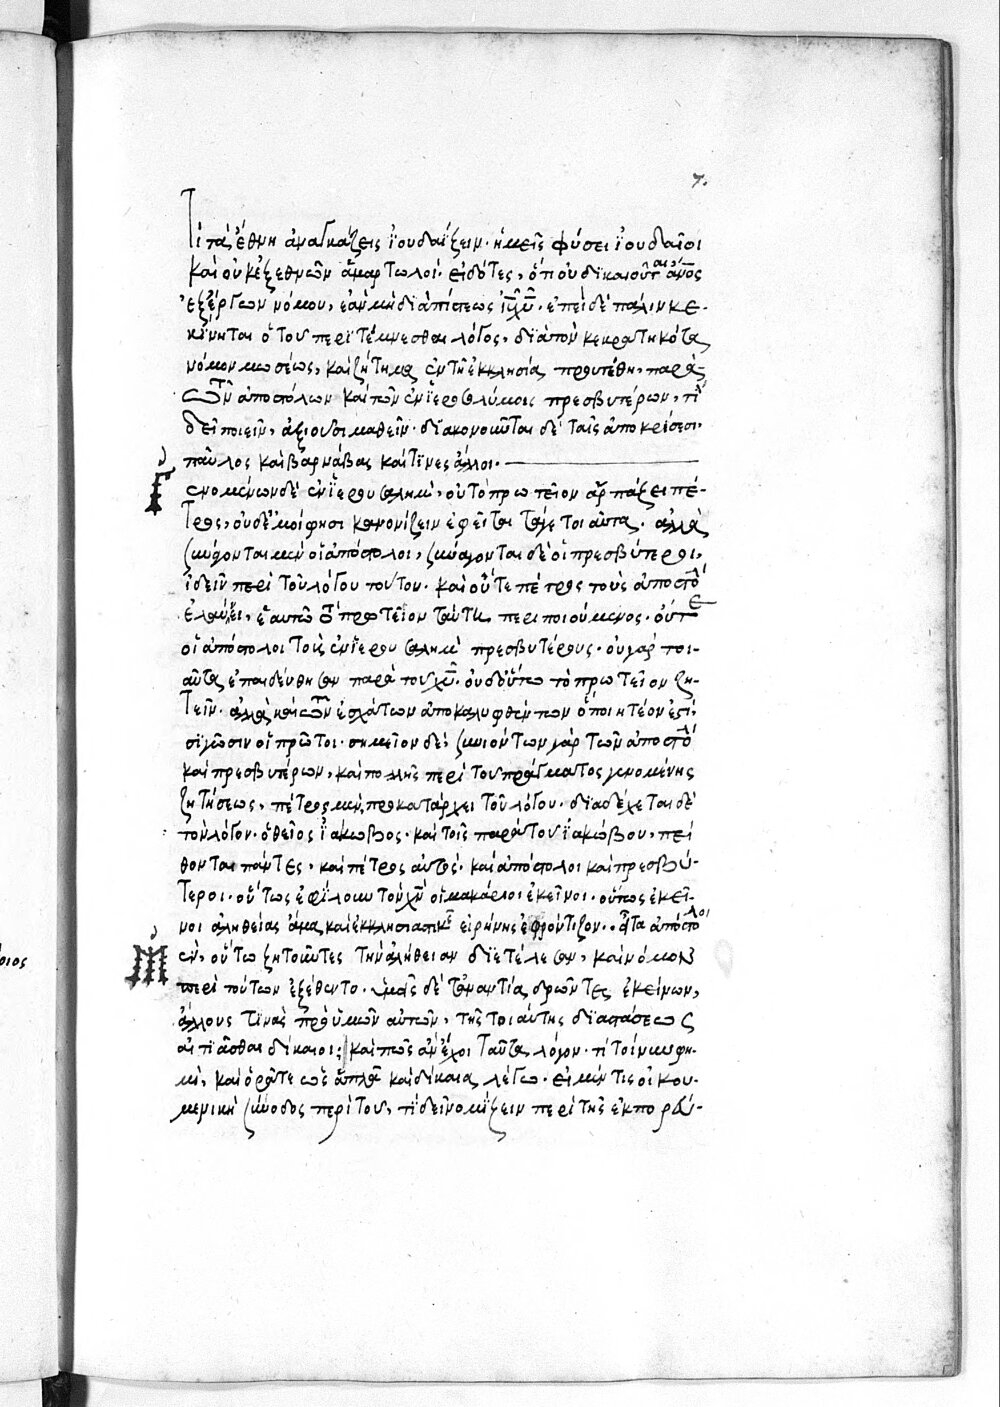 7.
Τί τὰ ἔθνη ἀναγκάζεις ἰουδαΐζειν· ἡμεῖς φύσει ἰουδαῖοι
καὶ οὐκ ἐξ ἐθνῶν ἁμαρτωλοί· εἰδότες, ὅτι οὐ δικαιοῦται ἄνος
ἐξ ἔργων νόμου, ἐὰν μὴ διὰ πίστεως ἰυ χυ· ἐπεὶ δὲ πάλιν κε-
κίνηται ὁ τοῦ περιτέμνεσθαι λόγος, διὰ τὸν κεκρατηκότα
νόμον μωσέως, καὶ ζήτημα ἐν τῇ ἐκκλησίᾳ προυτέθη, παρὰ
τῶν ἀποστόλων καὶ τῶν ἐν ἱεροσολύμοις πρεσβυτέρων, τί
δεῖ ποιεῖν, ἀξιοῦσι μαθεῖν· διακονοῦνται δὲ ταῖς ἀποκρίσεσι
παῦλος καὶ βαρνάβας καί τινες ἄλλοι.
Γενομένων δὲ ἐν ἱερουσαλὴμ, οὐ τὸ πρωτεῖον ἁρπάζει πέ-
τρος, οὐδ' ἐμοί φησι κανονίζειν ἐφεῖται τά γε τοιαῦτα· ἀλλὰ
συνάγονται μὲν οἱ ἀπόστολοι, συνάγονται δὲ οἱ πρεσβύτεροι,
ἰδεῖν περὶ τοῦ λόγου τούτου· καὶ οὔτε πέτρος τοὺς ἀποστό
ἑαυτῷ τὸ πρωτεῖον ταύτῃ περιποιούμενος· οὔτε
οἱ ἀπόστολοι τοὺς ἐν ἱερουσαλὴμ πρεσβυτέρους· οὐ γάρ τοι-
αῦτα ἐπαιδεύθησαν παρὰ τοῦ χυ· οὐδ' οὕτω τὸ πρωτεῖον ζη-
τεῖν· ἀλλὰ καὶ τῶν ἐσχάτων ἀποκαλυφθέντων ὃ ποιητέον ἐστί,
σιγῶσιν οἱ πρῶτοι· σημεῖον δέ, συνιόντων γὰρ τῶν ἀποστό
καὶ πρεσβυτέρων, καὶ πολλῆς περὶ τοῦ πράγματος γενομένης
ζητήσεως, πέτρος μὲν προκατάρχει τοῦ λόγου· διαδέχεται δὲ
τὸν λόγον ὁ θεῖος ἰάκωβος· καὶ τοῖς παρὰ τοῦ ἰακώβου, πεί
θονται πάντες, καὶ πέτρος αὐτός· καὶ ἀπόστολοι καὶ πρεσβύ-
τεροι· οὕτως ἐφίλουν τὸν χν οἱ μακάριοι ἐκεῖνοι· οὕτως ἐκεῖ-
νοι ἀληθείας ἅμα καὶ ἐκκλησιαστικῆς εἰρήνης ἐφρόντιζον· εἶτα ἀπόστολοι
μὲν, οὕτω ζητοῦντες τὴν ἀλήθειαν διετέλεσαν, καὶ νόμον
περὶ τούτων ἐξέθεντο· ὑμᾶς δὲ τἀναντία δρῶντες ἐκείνων,
ἄλλους τινὰς πρὸ ὑμῶν αὐτῶν, τῆς τοιαύτης διαστάσεως
αἰτιᾶσθαι δίκαιοι; καὶ πῶς ἂν ἔχοι ταῦτα λόγον· τί τοίνυν φη-
μί, καὶ ὁρᾶτε ὡς ἁπλᾶ καὶ δίκαια λέγω· εἰ μέν τις οἰκου-
μενικὴ σύνοδος περὶ τοῦ, τί δεῖ νομίζειν περὶ τῆς ἐκπορεύ-